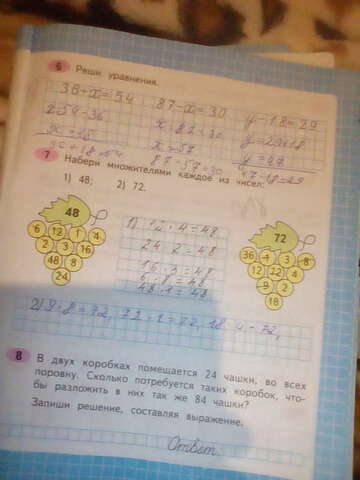 6 Реши уравнения.
36+x=54 87-x=30 y-18=29
x=54-36 x=87-30 y=29+18
x=18 x=57 y=47
36+18=54 87-57=30 47-18=29
7 Набери множителями каждое из чисел:
1) 48; 2) 72.
48
6 12 1 4
2 3 16
48 8
24
1) 12·4=48
24·2=48
16·3=48
6·8=48
48·1=48
72
36 4 3 8
12 72 4
9 2
18
2) 9·8=72, 72·1=72, 18·4=72,
8 В двух коробках помещается 24 чашки, во всех
поровну. Сколько потребуется таких коробок, что-
бы разложить в них так же 84 чашки?
Запиши решение, составляя выражение.
Ответ